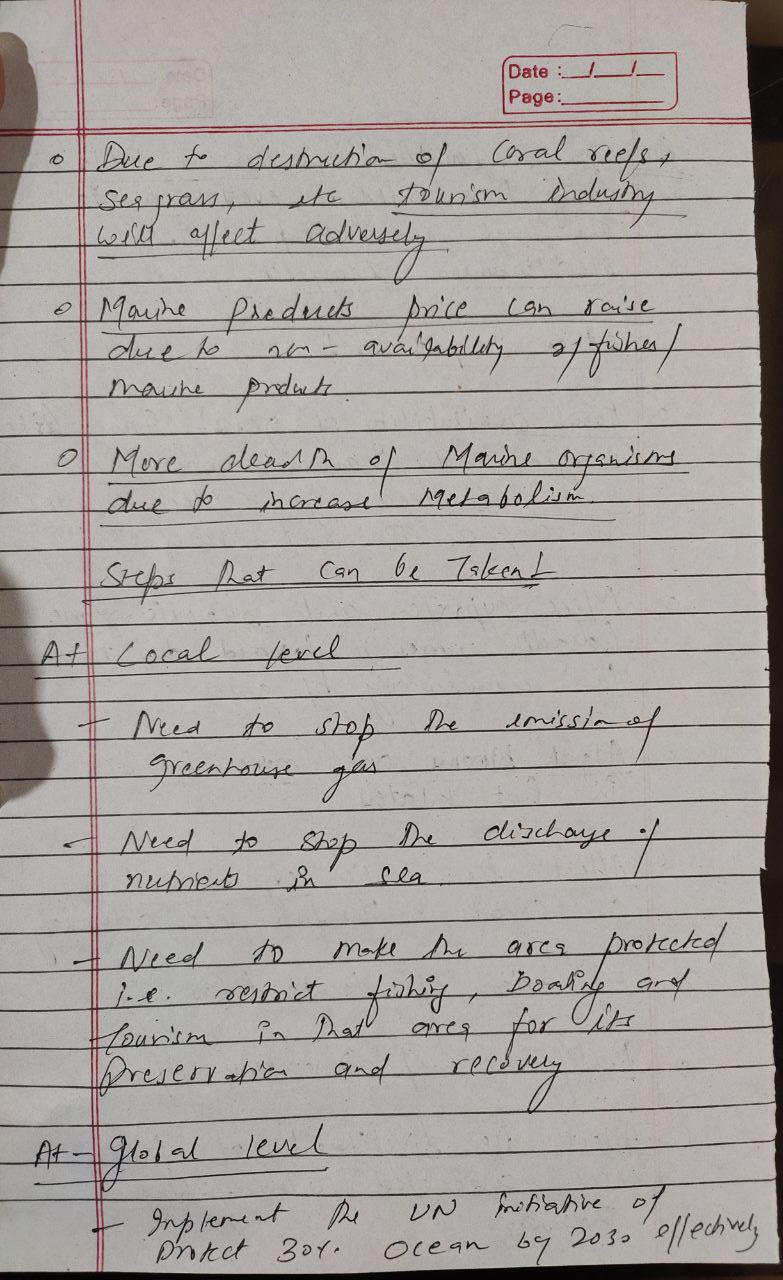 Date : / /
Page:
o Due to destruction of coral reefs,
sea grass, etc tourism industry
will affect adversely
o Marine Products price can raise
due to non-availability of fishes/
marine products.
o More deadth of Marine organisms
due to increase Metabolism.
Steps that can be Taken!
At Local level
- Need to stop the emission of
greenhouse gas
- Need to stop the discharge of
nutrients in sea
- Need to make the area protected
i.e. restrict fishing, Boating and
tourism in that area for its
preservation and recovery
At - Global level
- Implement the UN initiative of
Protect 30% Ocean by 2030 effectively